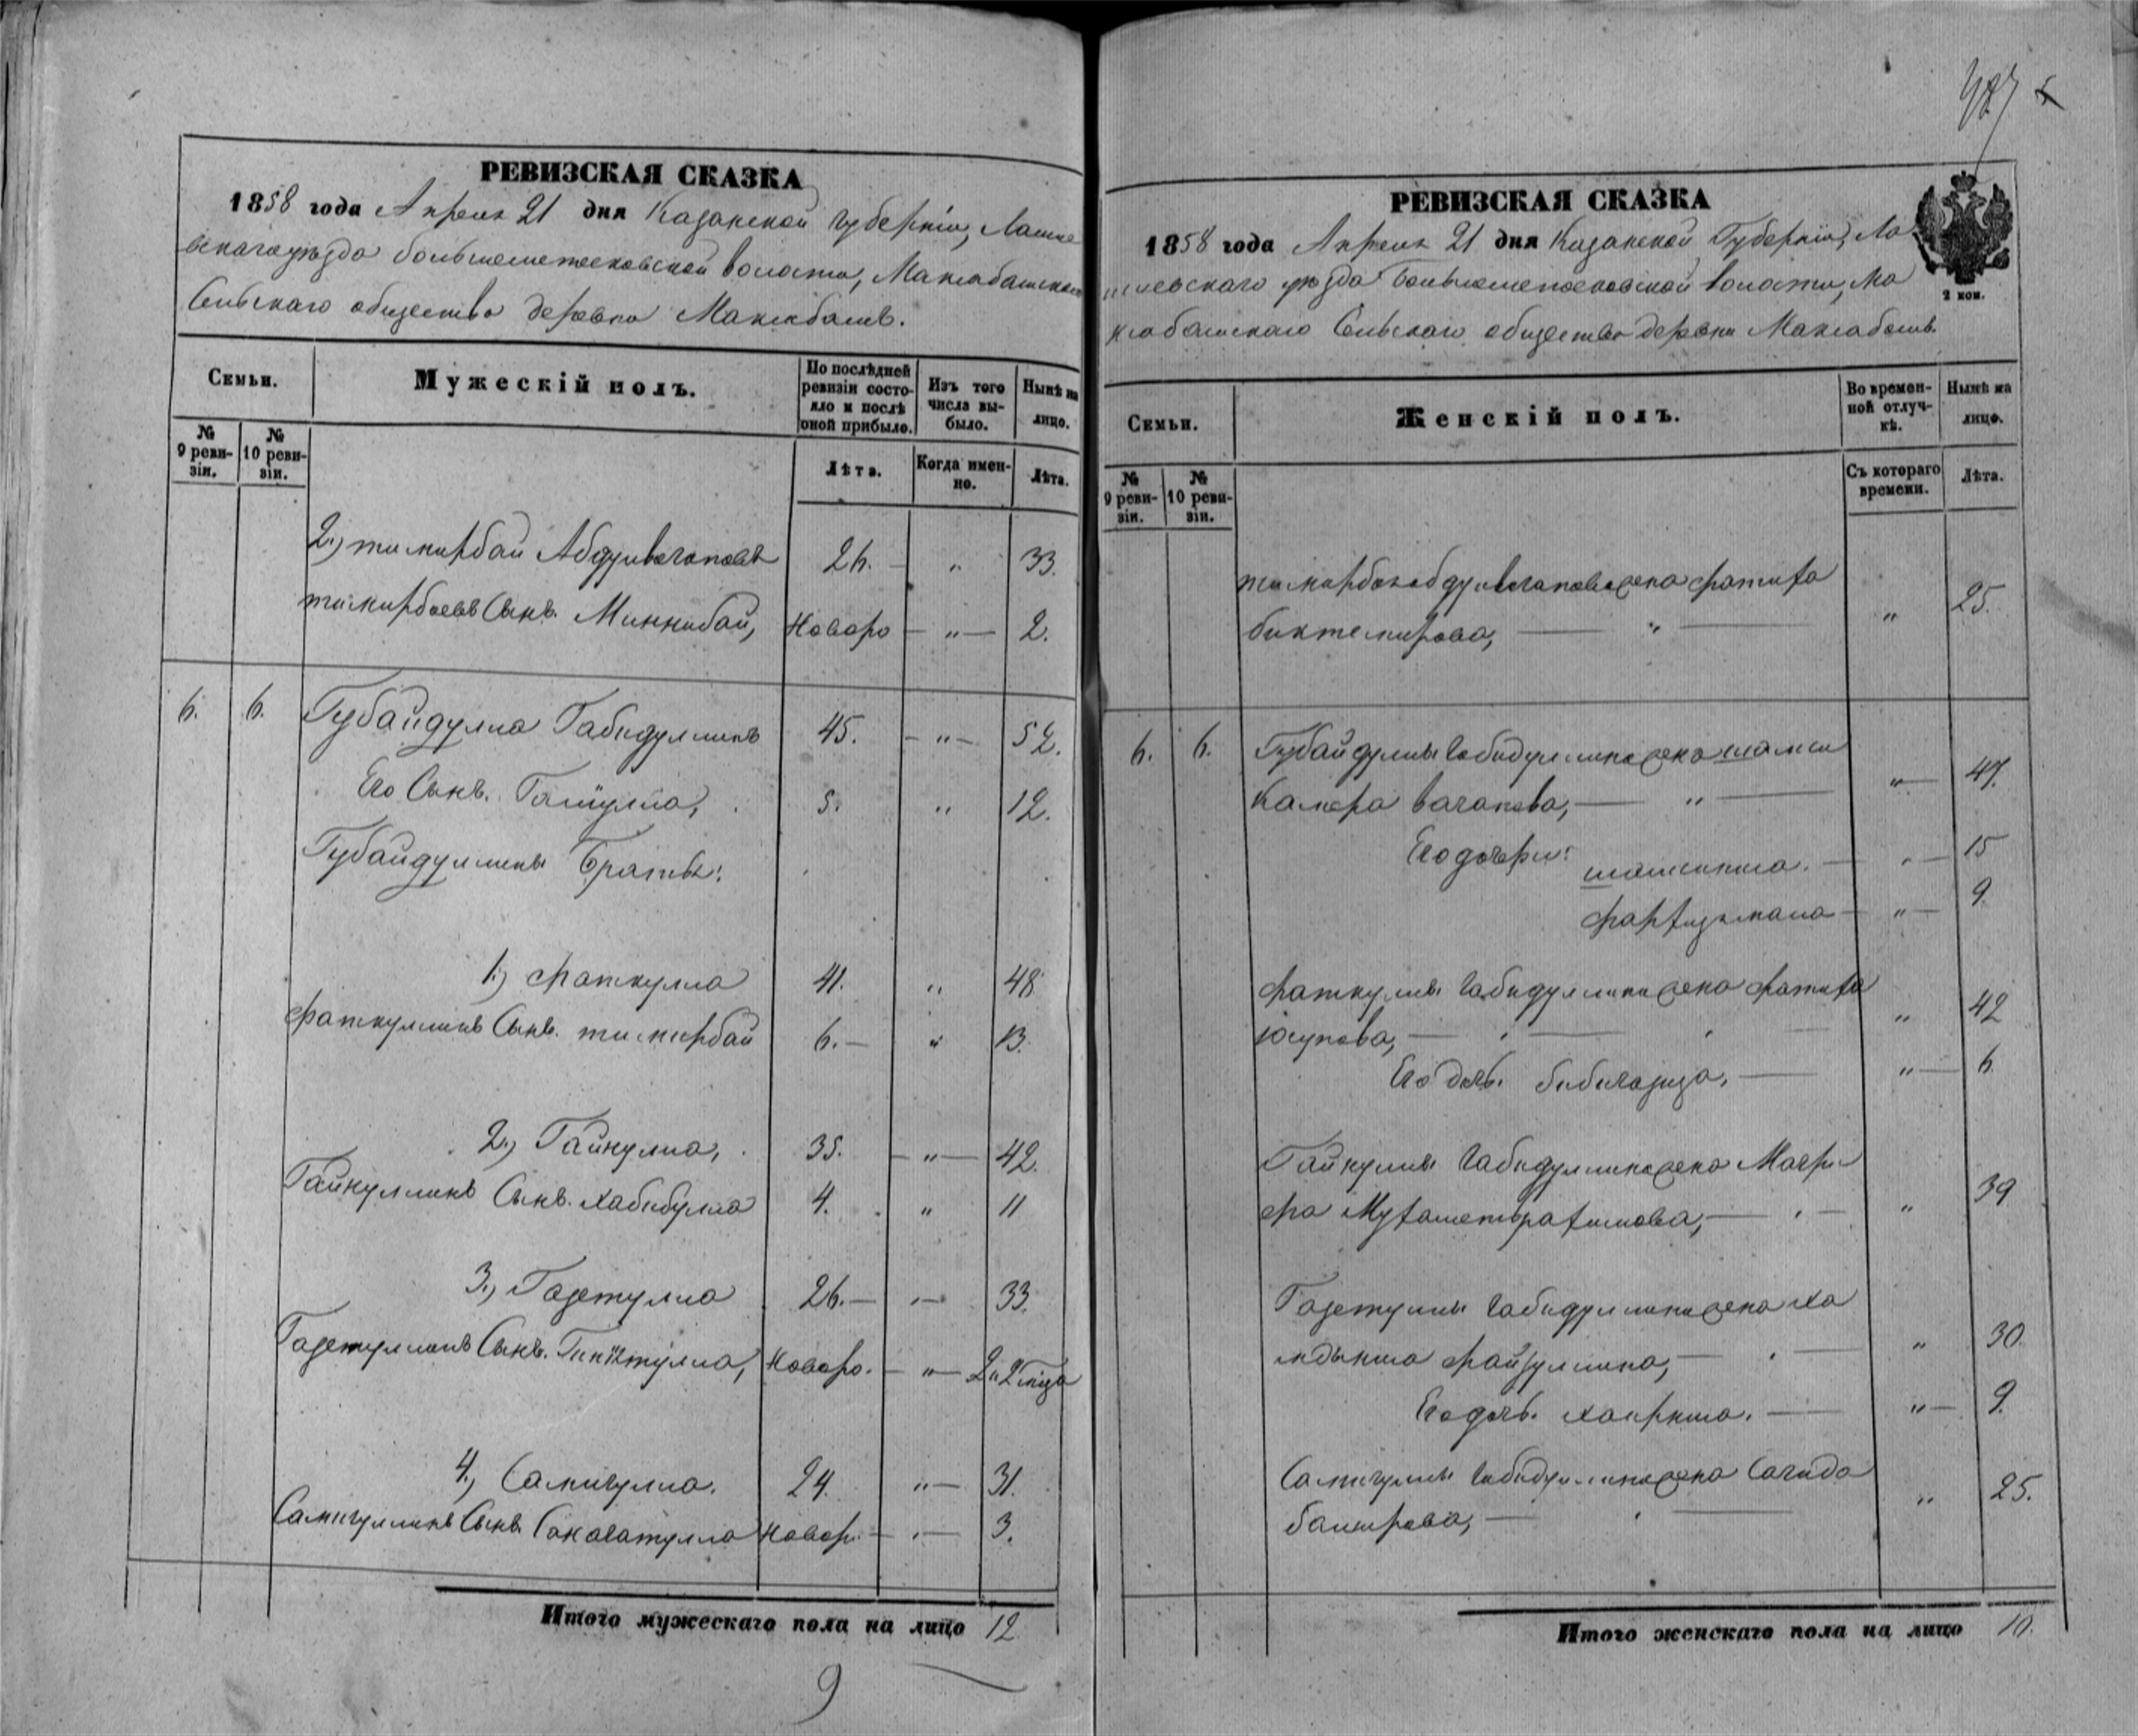 РЕВИЗСКАЯ СКАЗКА
1858 года Апреля 21 дня Казанской Губерніи, Лаише
вскаго уѣзда большеметесковской волости, Маклабашскаго
Сельскаго общества деревни Маклабашъ.
Семьи.
Мужескій полъ.
По послѣдней ревизіи состояло и послѣ оной прибыло.
Изъ того числа выбыло.
Нынѣ на лицо.
№ 9 ревизіи.
№ 10 ревизіи.
Лѣта.
Когда именно.
Лѣта.
2.) тимирбай Абдулвагаповъ 26. — „ 33.
тимирбаевъ Сынъ. Миннибай, Новоро — „ — 2.
6. 6. Губайдулла Габидуллинъ 45. — „ — 52.
Его Сынъ. 5. „ 12.
Губайдуллины Братья:
1.) Фаткулла 41. „ 48
Фаткуллинъ Сынъ. тимирбай 6. — „ 13.
2.) Гайнулла, 35. — „ — 42.
Гайнуллинъ Сынъ. Хабибулла 4. „ 11
3.) Газетулла 26. — „ — 33.
Газетуллинъ Сынъ. Новоро. — „ — 2 и 2 мца
4.) Самигулла. 24. „ — 31.
Самигуллинъ Сынъ. Сахаватулла Новор. — „ — 3.
Итого мужескаго пола на лицо 12
9
427
РЕВИЗСКАЯ СКАЗКА
1858 года Апреля 21 дня Казанской Губерніи, Ла
ишевскаго уѣзда Большеметесковской волости, Ма
клабашскаго Сельскаго общества деревни Маклабашъ.
2 коп.
Семьи.
Женскій полъ.
Во временной отлучкѣ.
Нынѣ на лицо.
№ 9 ревизіи.
№ 10 ревизіи.
Съ котораго времени.
Лѣта.
тимирбая абдулвагапова жена фатиха
биктемирова, — „ — „ 25.
6. 6. Губайдуллы Габидуллина жена шамси
Камера вагапова, — „ — „ — 47.
Его дочери: — „ — 15
— „ — 9.
Фаткуллы Габидуллина жена фатиха
Юсупова, — „ 42
Его дочь. бибигазиза, — „ — 6.
Гайнуллы Габидуллина жена Магри
фа Мухаметрахимова, — „ 39
Газетуллы Габидуллина жена Ха
файзуллина, — „ 30.
Его дочь. — „ — 9.
Самигуллы Габидуллина жена Сагида
баширова, — „ 25.
Итого женскаго пола на лицо 10.